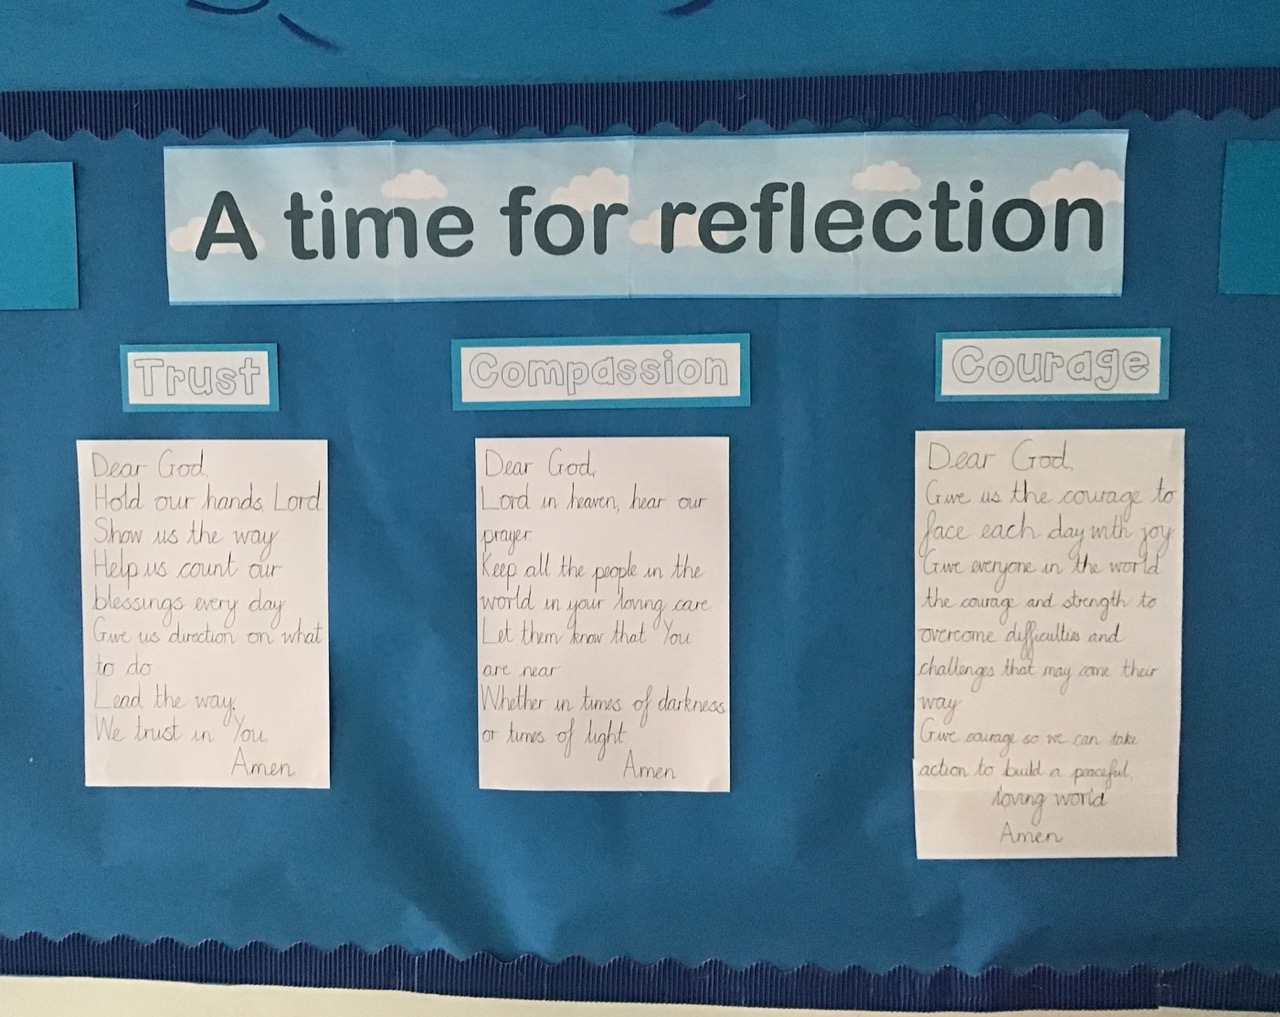 A time for reflection
Trust
Dear God,
Hold our hands, Lord
Show us the way
Help us count our
blessings every day
Give us direction on what
to do
Lead the way,
We trust in You.
Amen
Compassion
Dear God,
Lord in heaven, hear our
prayer
Keep all the people in the
world in your loving care.
Let them know that You
are near
Whether in times of darkness
or times of light
Amen
Courage
Dear God,
Give us the courage to
face each day with joy.
Give everyone in the world
the courage and strength to
overcome difficulties and
challenges that may come their
way
Give courage so we can take
action to build a peaceful,
loving world
Amen